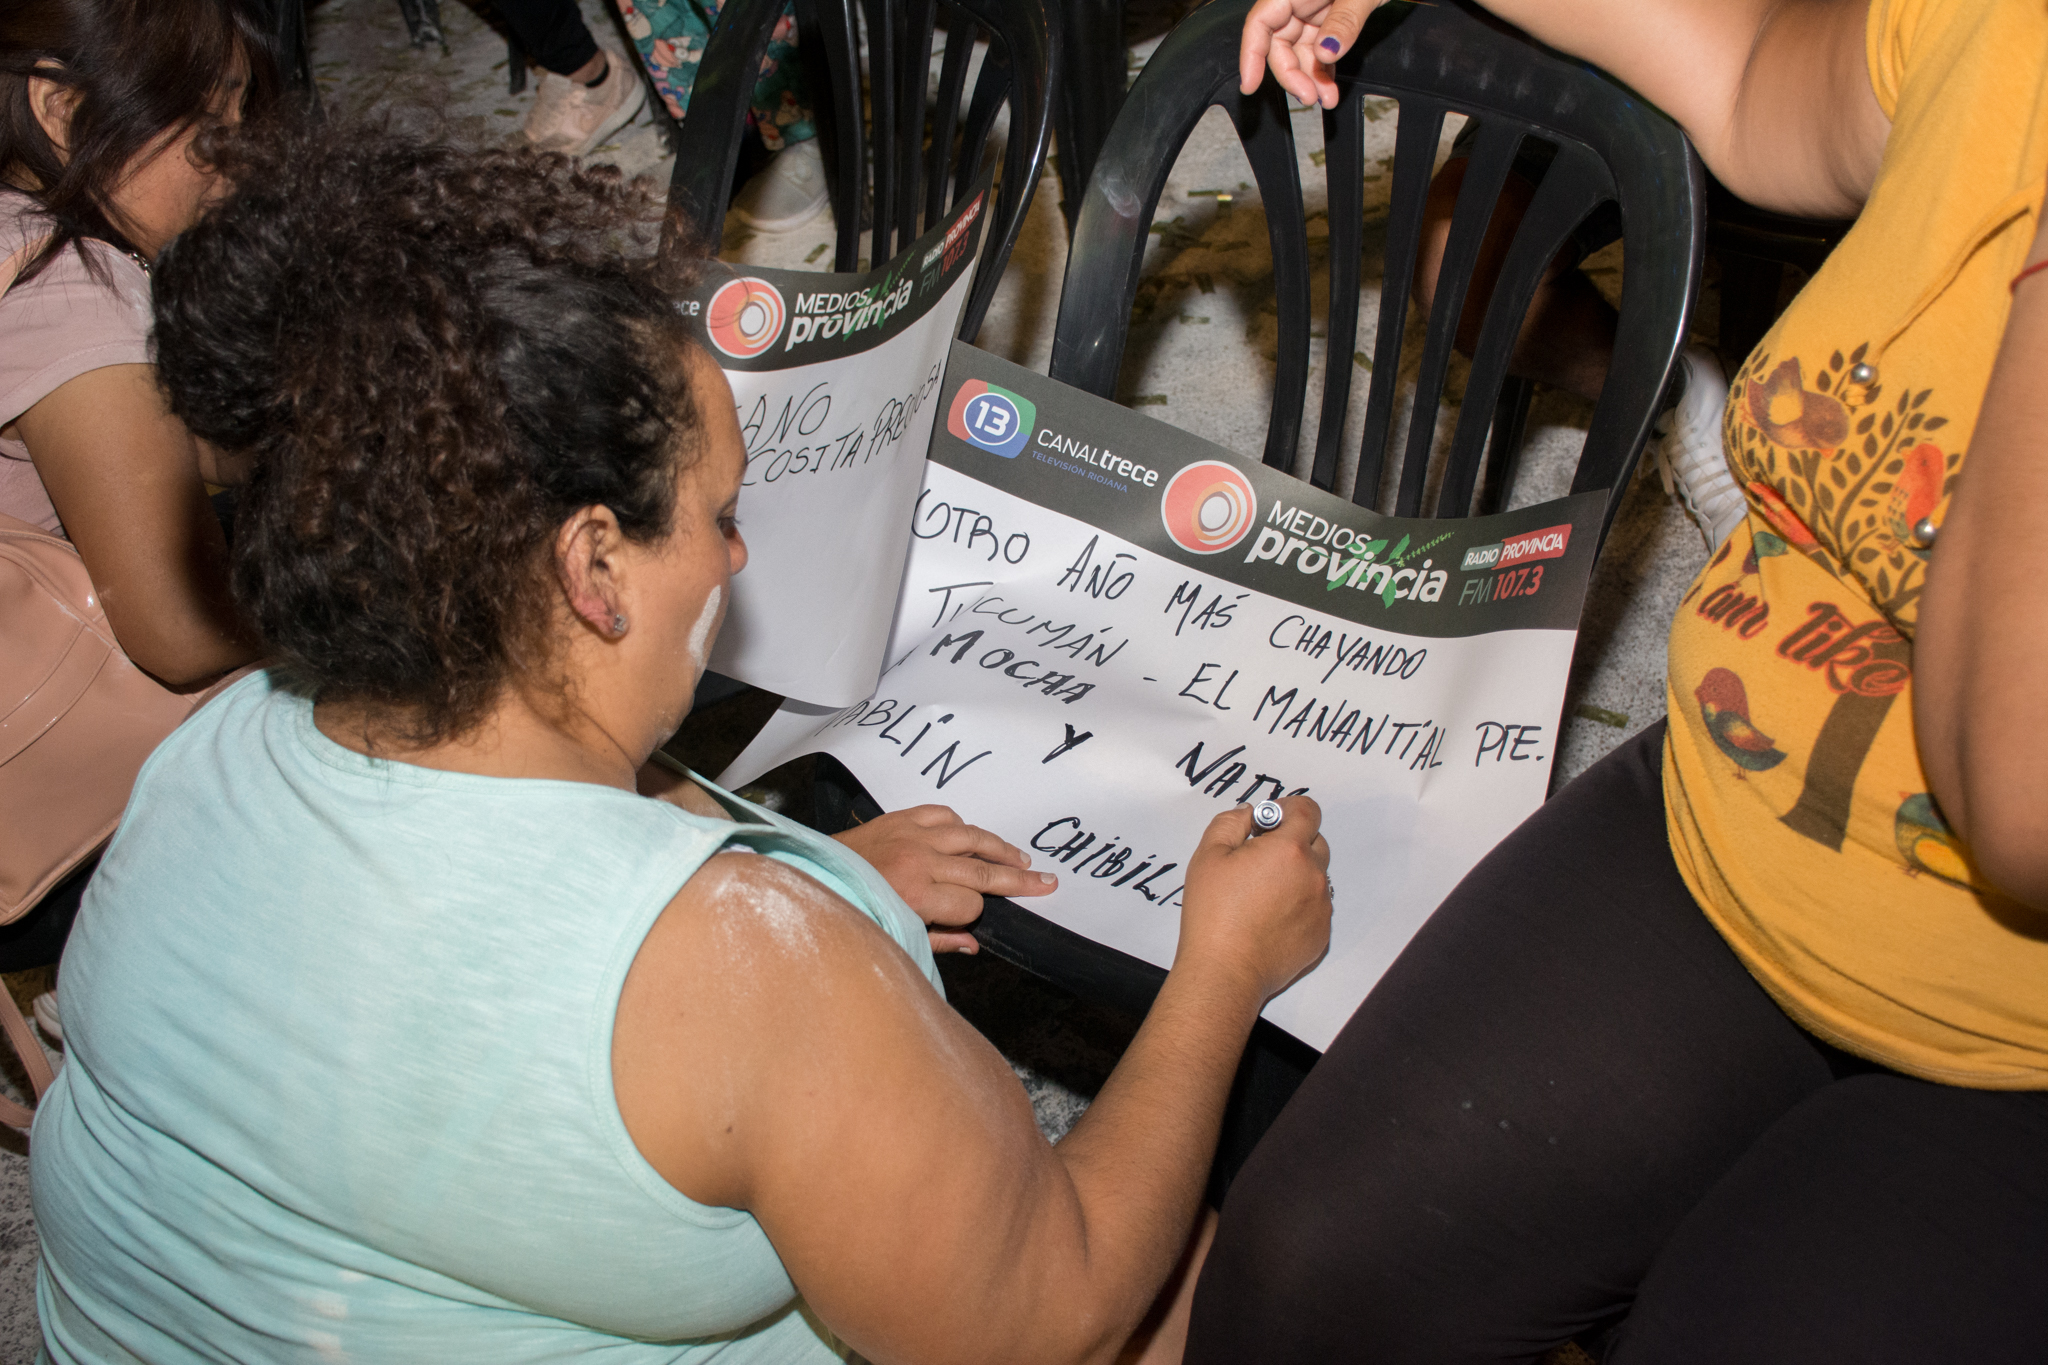 rece
MEDIOS
provincia
RADIO PROVINCIA
FM 107.3
AÑO
COSITA PRECIOSA
13
CANALtrece
TELEVISIÓN RIOJANA
MEDIOS
provincia
RADIO PROVINCIA
FM 107.3
OTRO AÑO MAS CHAYANDO
TUCUMÁN - EL MANANTIAL PTE.
MOCHA Y
ABLIN CHIBILI
am like